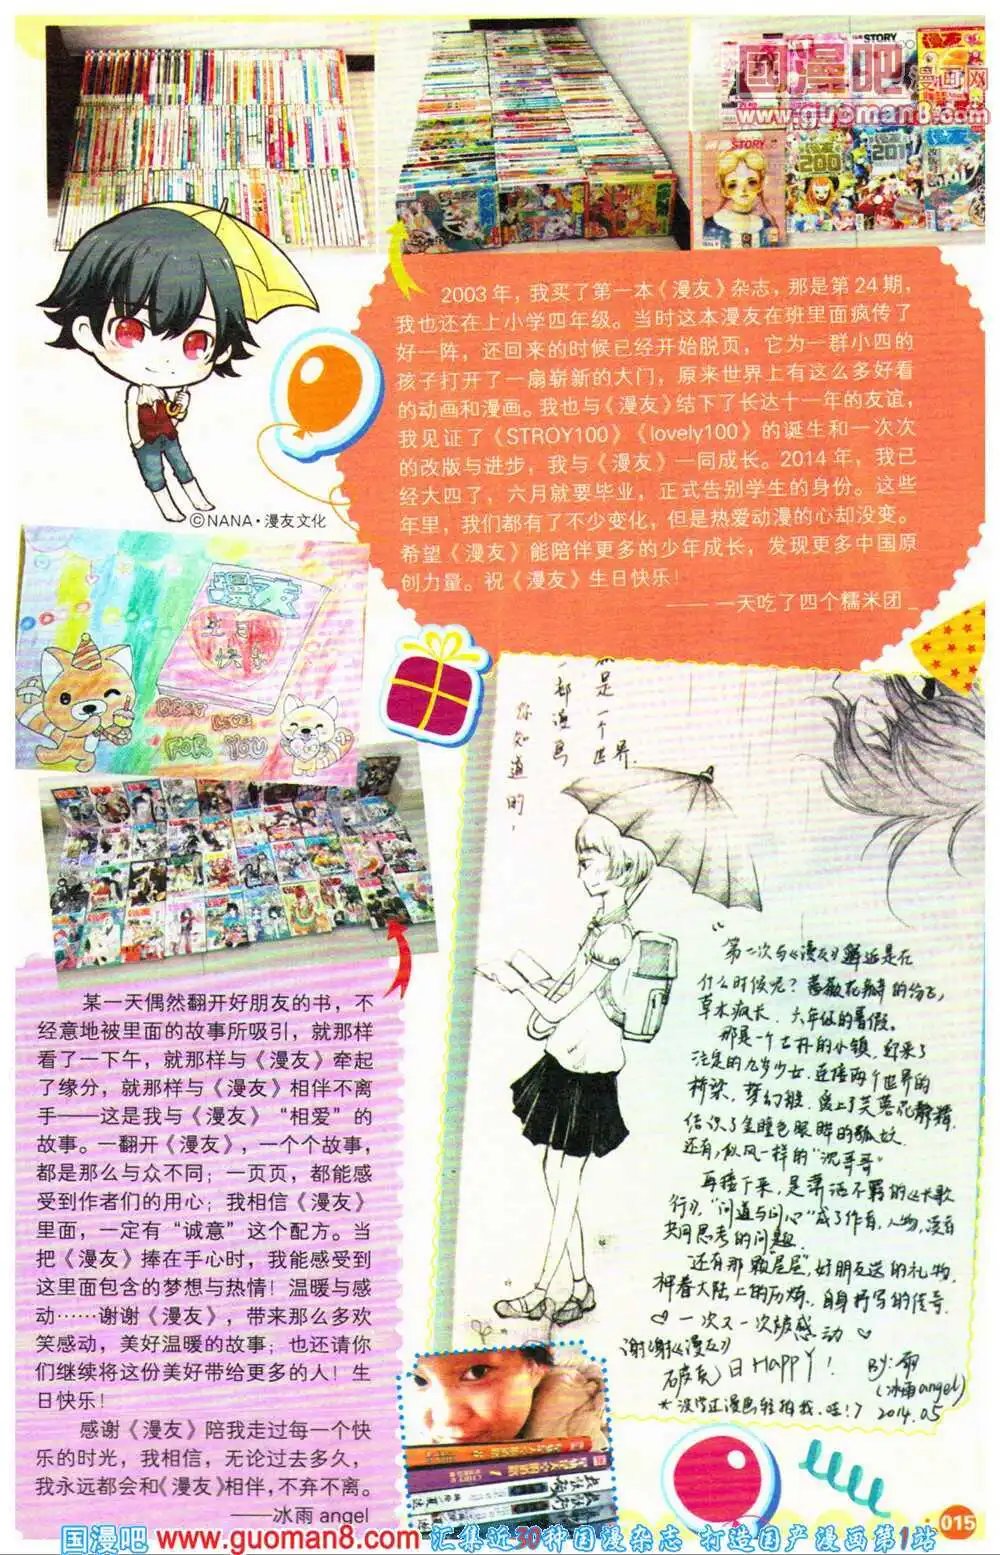 国漫吧
漫画网
www.guoman8.com
STORY
STORY
200
201
2003年，我买了第一本《漫友》杂志，那是第24期，
我也还在上小学四年级。当时这本漫友在班里面疯传了
好一阵，还回来的时候已经开始脱页，它为一群小四的
孩子打开了一扇崭新的大门，原来世界上有这么多好看
的动画和漫画。我也与《漫友》结下了长达十一年的友谊，
我见证了《STROY100》《lovely100》的诞生和一次次
的改版与进步，我与《漫友》一同成长。2014年，我已
经大四了，六月就要毕业，正式告别学生的身份。这些
年里，我们都有了不少变化，但是热爱动漫的心却没变。
希望《漫友》能陪伴更多的少年成长，发现更多中国原
创力量。祝《漫友》生日快乐！
—— 一天吃了四个糯米团_
©NANA·漫友文化
漫友
生日
快乐
FOR YOU
是一个世界.
你知道的，
某一天偶然翻开好朋友的书，不
经意地被里面的故事所吸引，就那样
看了一下午，就那样与《漫友》牵起
了缘分，就那样与《漫友》相伴不离
手——这是我与《漫友》“相爱”的
故事。一翻开《漫友》，一个个故事，
都是那么与众不同；一页页，都能感
受到作者们的用心；我相信《漫友》
里面，一定有“诚意”这个配方。当
把《漫友》捧在手心时，我能感受到
这里面包含的梦想与热情！温暖与感
动……谢谢《漫友》，带来那么多欢
笑感动，美好温暖的故事；也还请你
们继续将这份美好带给更多的人！生
日快乐！
感谢《漫友》陪我走过每一个快
乐的时光，我相信，无论过去多久，
我永远都会和《漫友》相伴，不弃不离。
——冰雨 angel
第一次与《漫友》邂逅是在
什么时候呢？蔷薇花瓣的纷飞，
草木疯长，六年级的暑假。
那是一个古朴的小镇，迎来了
注定的九岁少女，连接两个世界的
桥梁，梦幻般，爱上了芙蓉花静精，
结识了金瞳色眼眸的狐妖.
还有，似风一样的“沉哥哥”
再接下来，是潇洒不羁的《长歌
行》，“问道与问心”成了作者，人物，读者
共同思考的问题.
还有那“颗星星”，好朋友送的礼物，
神眷大陆上的历炼，自身抒写的传奇.
♡ 一次又一次被感动 ♡
谢谢《漫友》
破壳日HAPPY！
BY：雨
(冰雨angel)
2014.05
015
国漫吧 www.guoman8.com 汇集近30种国漫杂志 打造国产漫画第1站